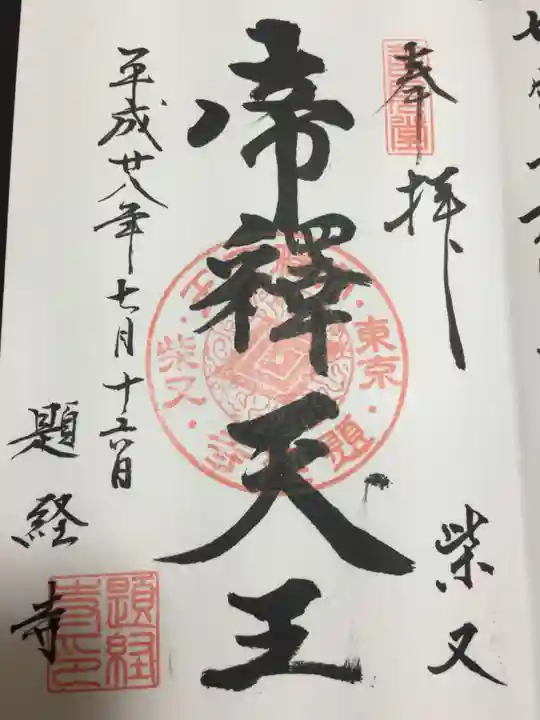 奉拝
柴又
帝釋天王
平成廿八年七月十六日
題経寺
東京
柴又
題経寺印